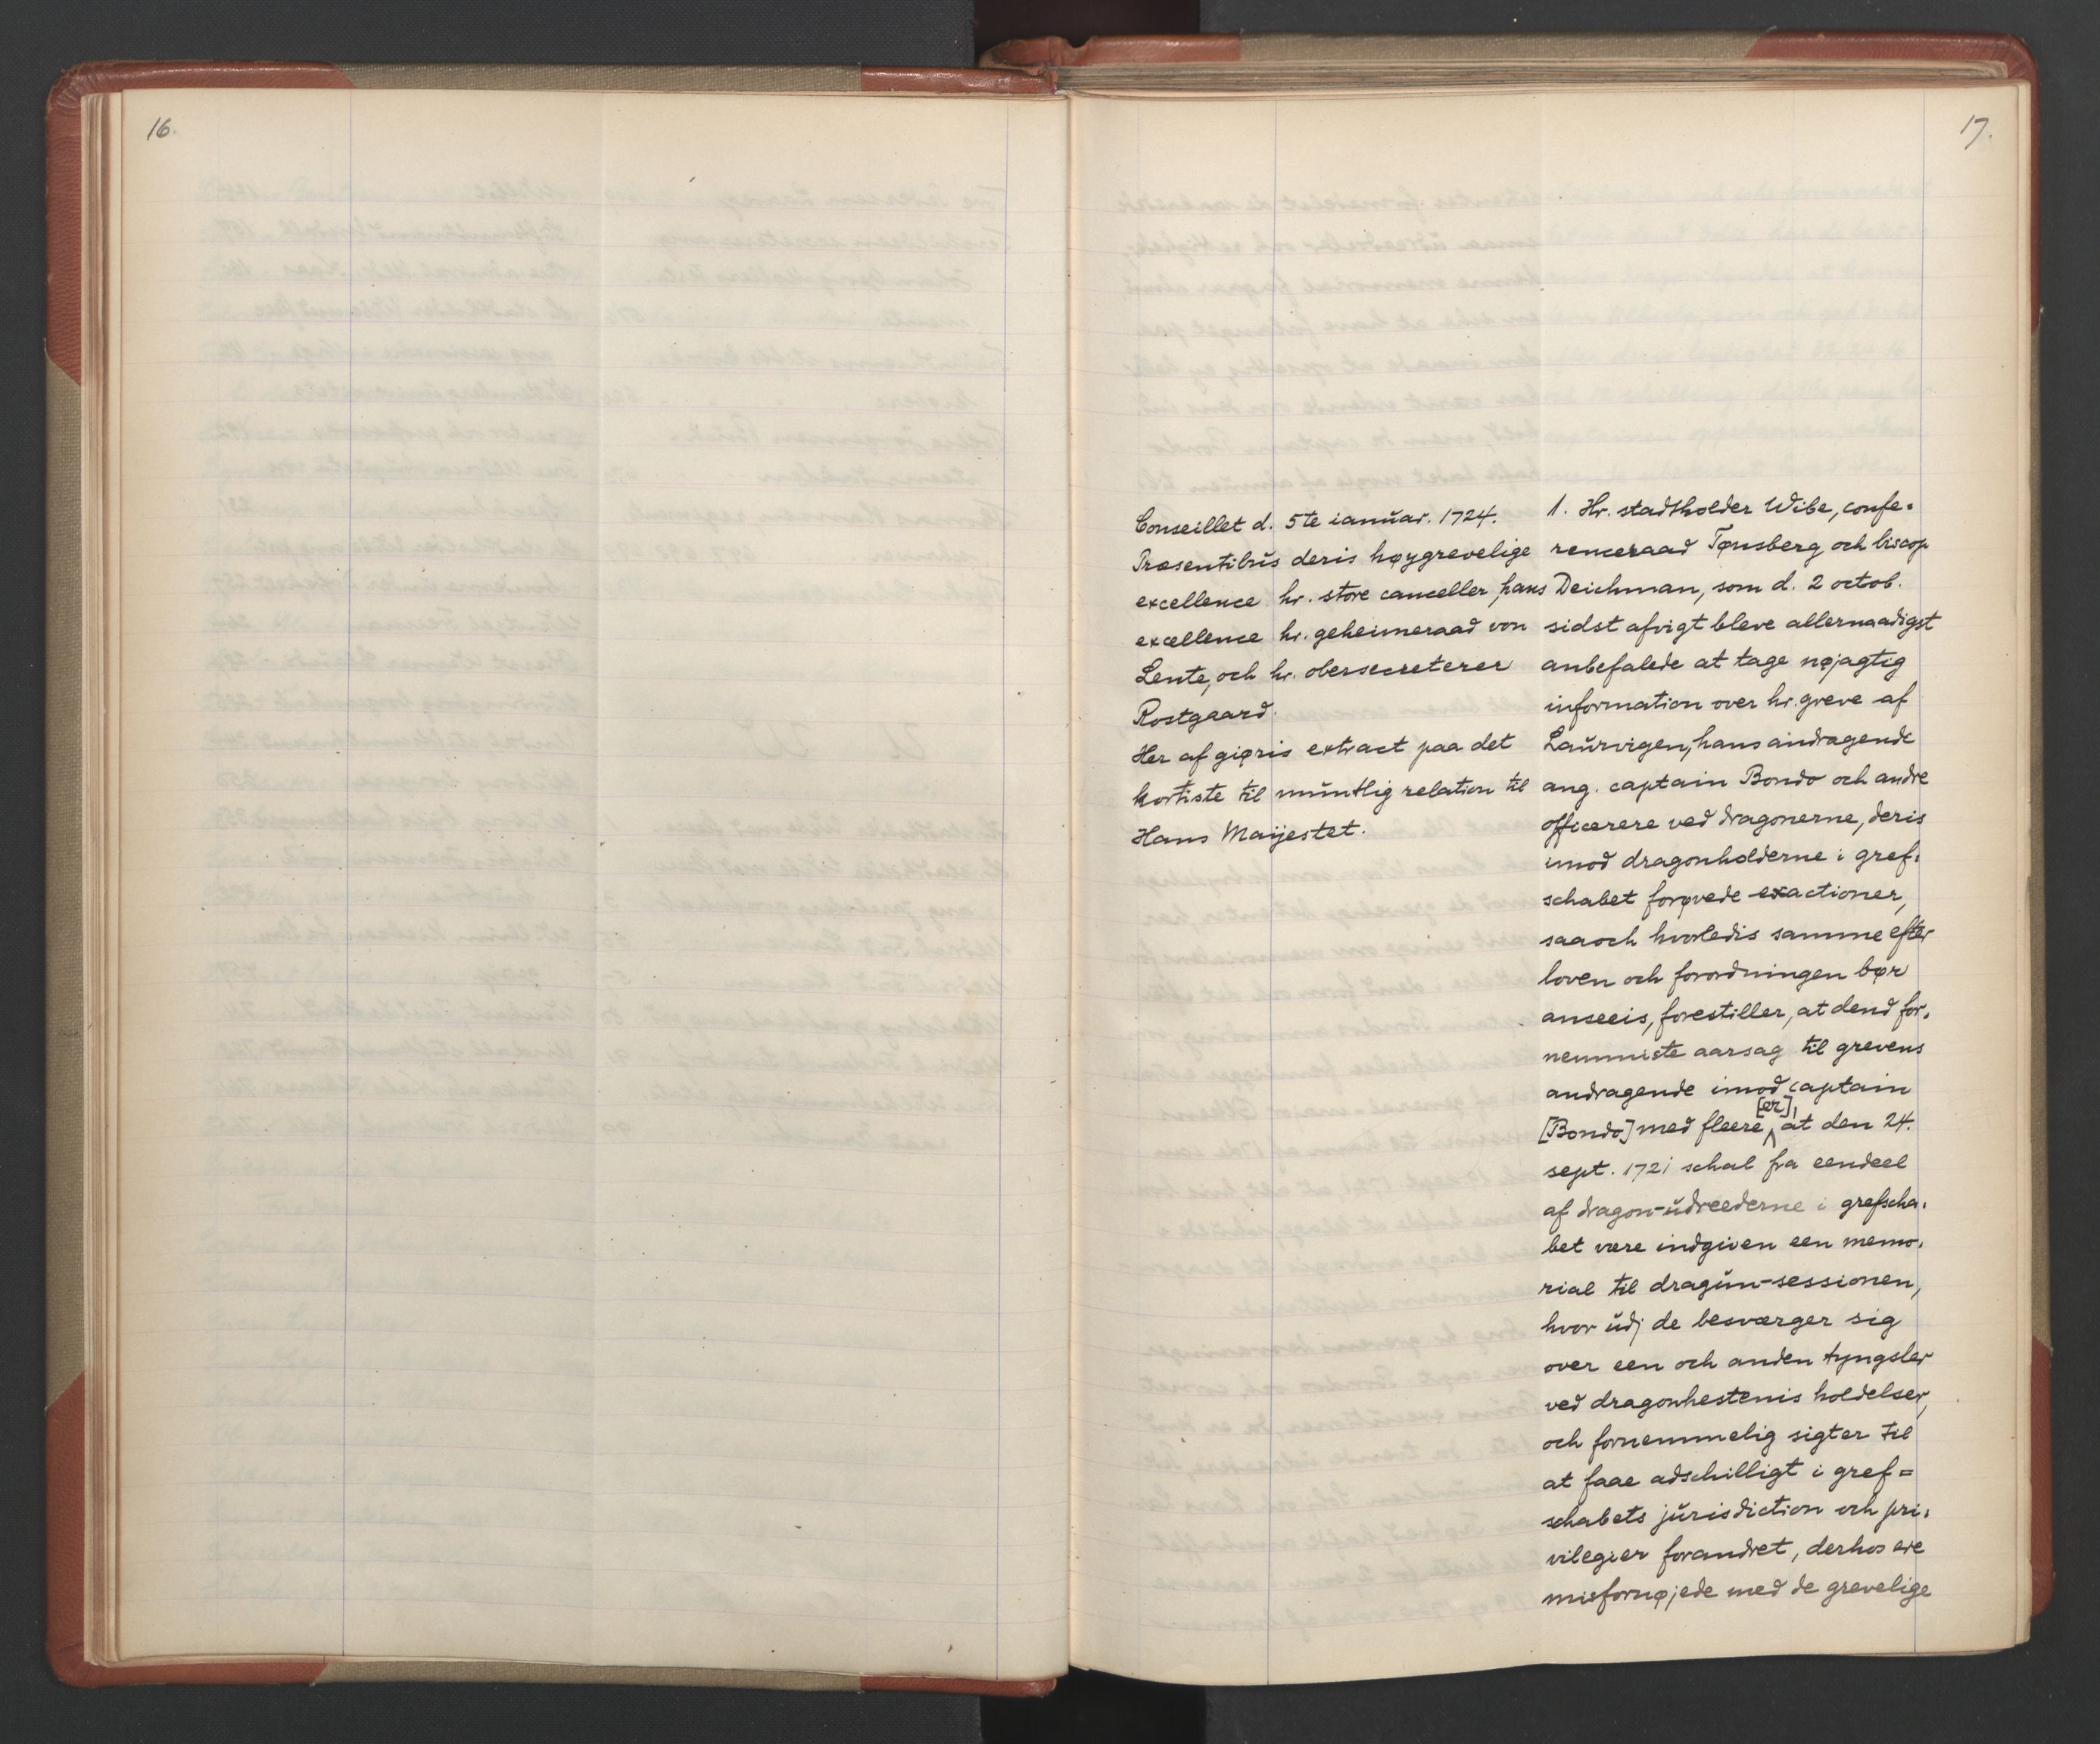 16.
17.
Conseillet d. 5te ianŭar. 1724.
Præsentibŭs deris høygrevelige
excellence hr. store canceller, hans
excellence hr. geheimeraad von
Lente, och hr. obersecreterer
Rostgaard.
Her af giøris extract paa det
kortiste til mŭntlig relation til
Hans Maijestet.
1. Hr. stadtholder Wibe, confe-
renceraad Tønsberg och biscop
Deichman, som d. 2 octob.
sidst afvigt bleve allernaadigst
anbefalede at tage nøjagtig
information over hr. greve af
Laŭrvigen, hans andragende
ang. captain Bondo och andre
officerere ved dragonerne, deris
imod dragonholderne i gref-
schabet forøvede exactioner,
saaoch hvorledis samme efter
loven och forordningen bør
anseeis, forestiller, at dend for-
nemmiste aarsag til grevens
andragende imod captain
[Bondo] med fleere [er], at den 24.
sept. 1721 schal fra eendeel
af dragon-ŭdreederne i grefscha-
bet være indgiven een memo-
rial til dragŭn-sessionen,
hvor ŭdj de besværger sig
over een och anden tyngsler
ved dragonhestenis holdelser,
och fornemmelig sigter til
at faae adschilligt i gref=
schabets jŭrisdiction och pri-
vilegier forandret, derhos ere
misfornøjede med de grevelige